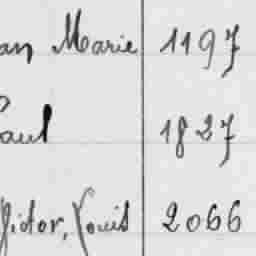 an Marie 1197
Paul 1827
Victor, Louis 2066